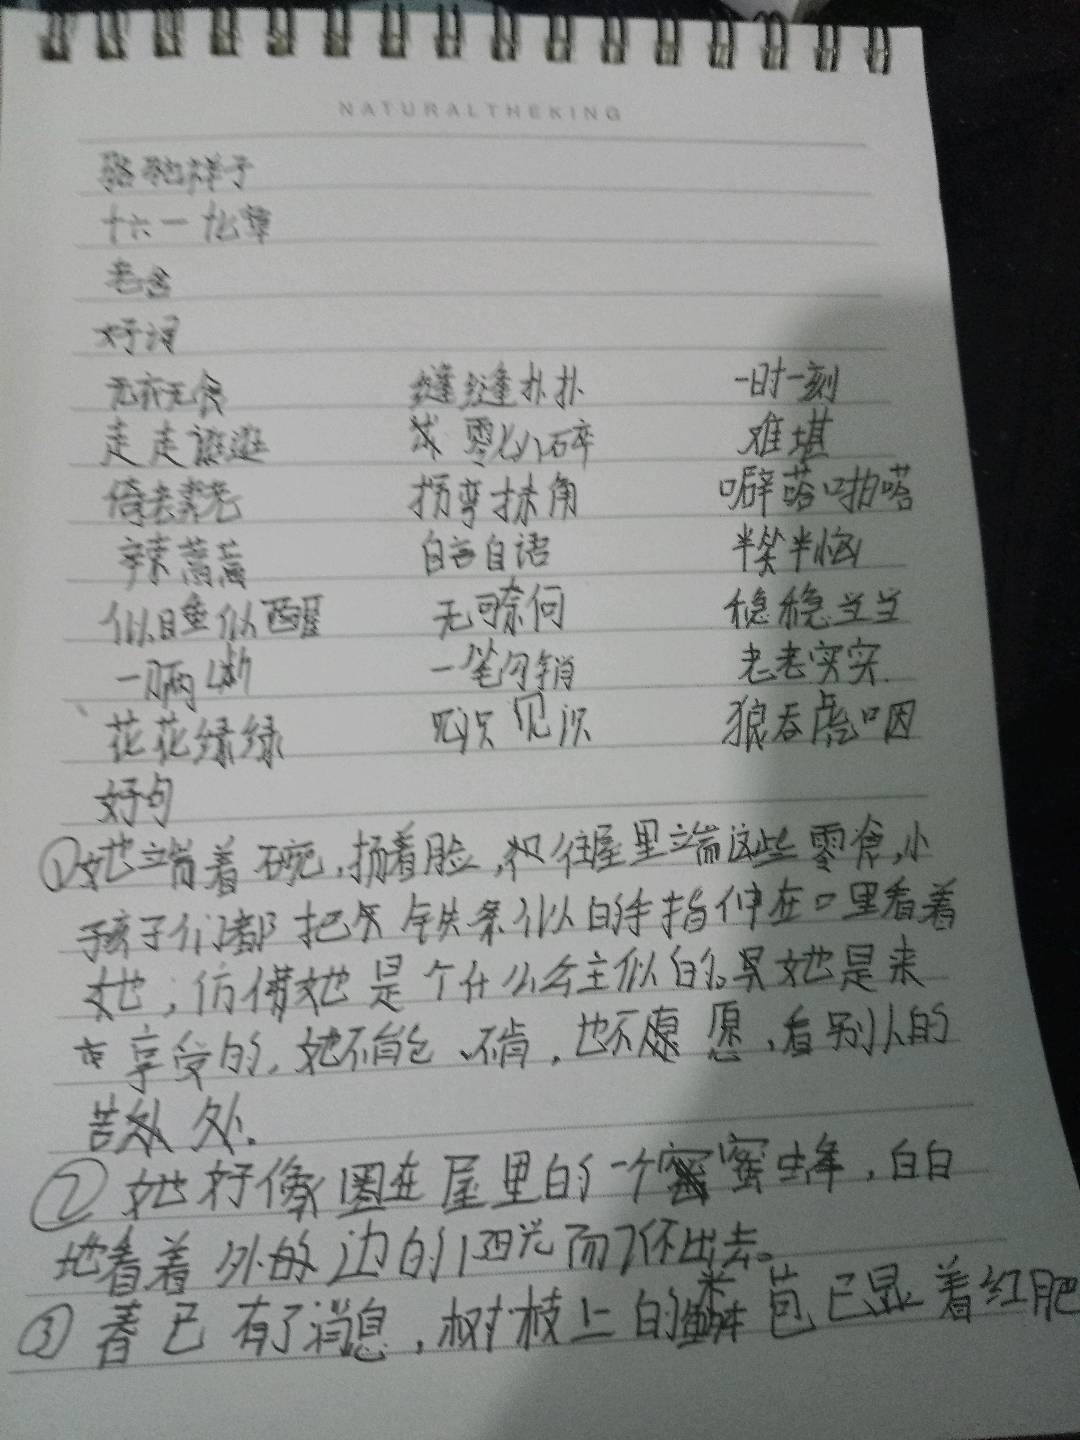 NATURALTHEKING
骆驼祥子
十六一十九章
老舍
好词
无衣无食 缝缝扑扑 一时一刻
走走逛逛 零七八碎 难堪
倚老卖老 拐弯抹角 噼嗒啪嗒
辣蒿蒿 自言自语 半笑半恼
似睡似醒 无可奈何 稳稳当当
一刀两断 一笔勾销 老老实实
花花绿绿 见识见识 狼吞虎咽
好句
①她端着碗,扬着脸,往屋里端这些零食,小
孩子们都把 铁条似的手指伸在口里看着
她,仿佛她是个什么公主似的。她是来
享受的,她不能、不肯,也不愿 愿,看别人的
苦处 处。
②她好像圈在屋里的一个蜜蜂,白白
地看着外的边的阳光而飞不出去。
③春已有了消息,树枝上的鳞苞已显着红肥